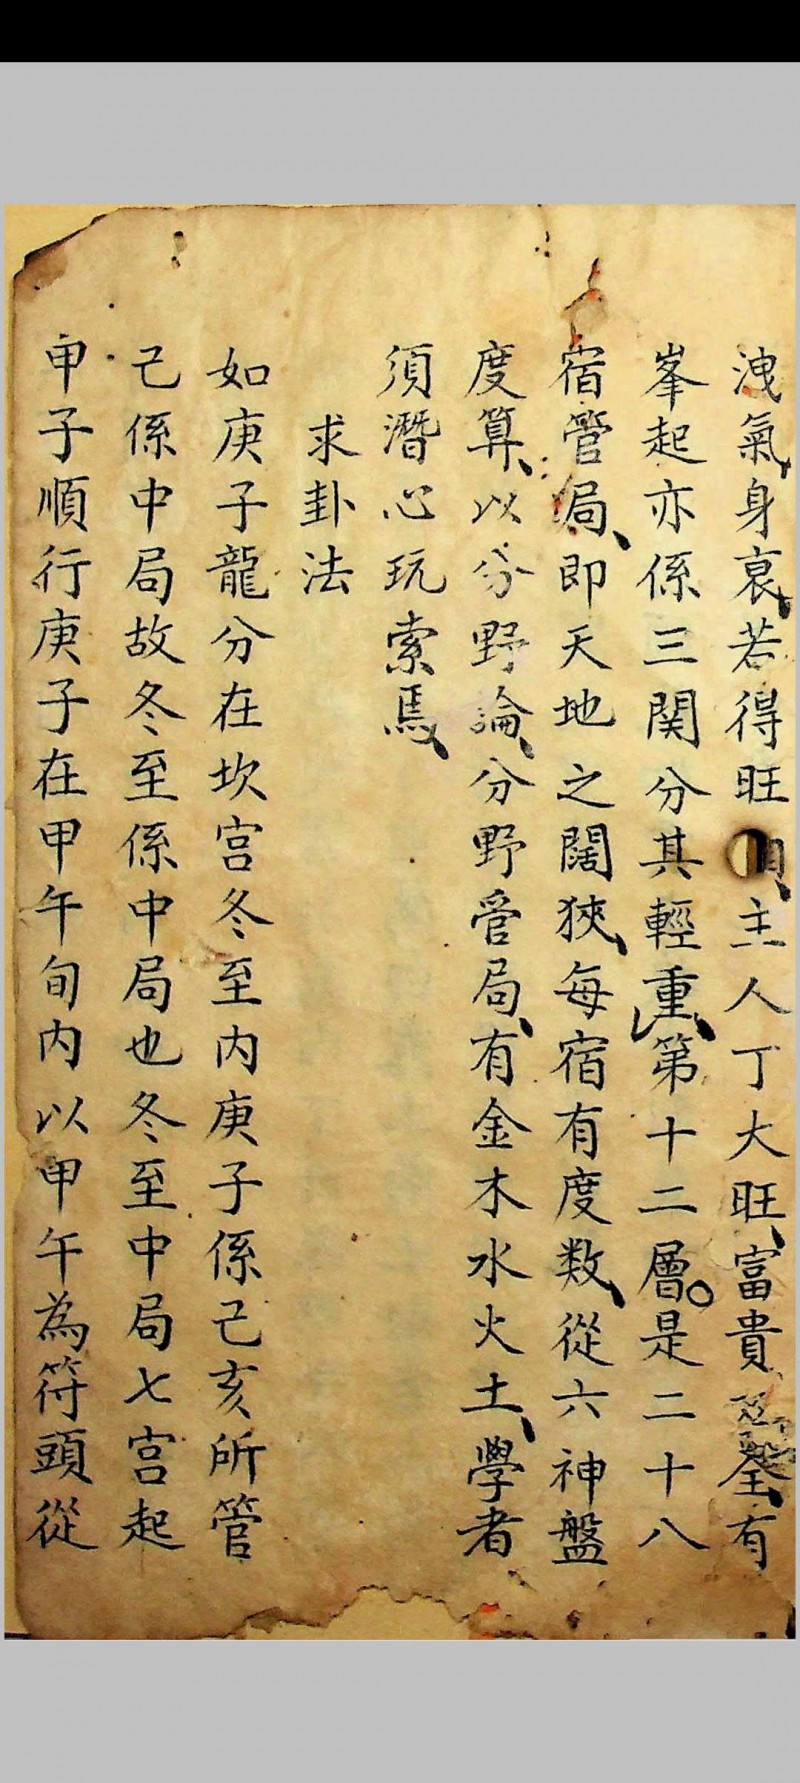 洩氣、身衰、若得旺頂、主人丁大旺、富貴雙全、有
峯起亦係三関分其輕重、第十二層。是二十八
宿管局、即天地之闊狹、每宿有度数、從六神盤
度算、以分野論、分野管局、有金木水火土、學者
須潛心玩索焉、
求卦法
如庚子龍分在坎宮冬至内庚子係己亥所管
己係中局故冬至係中局也冬至中局七宮起
甲子順行庚子在甲午旬内以甲午為符頭從